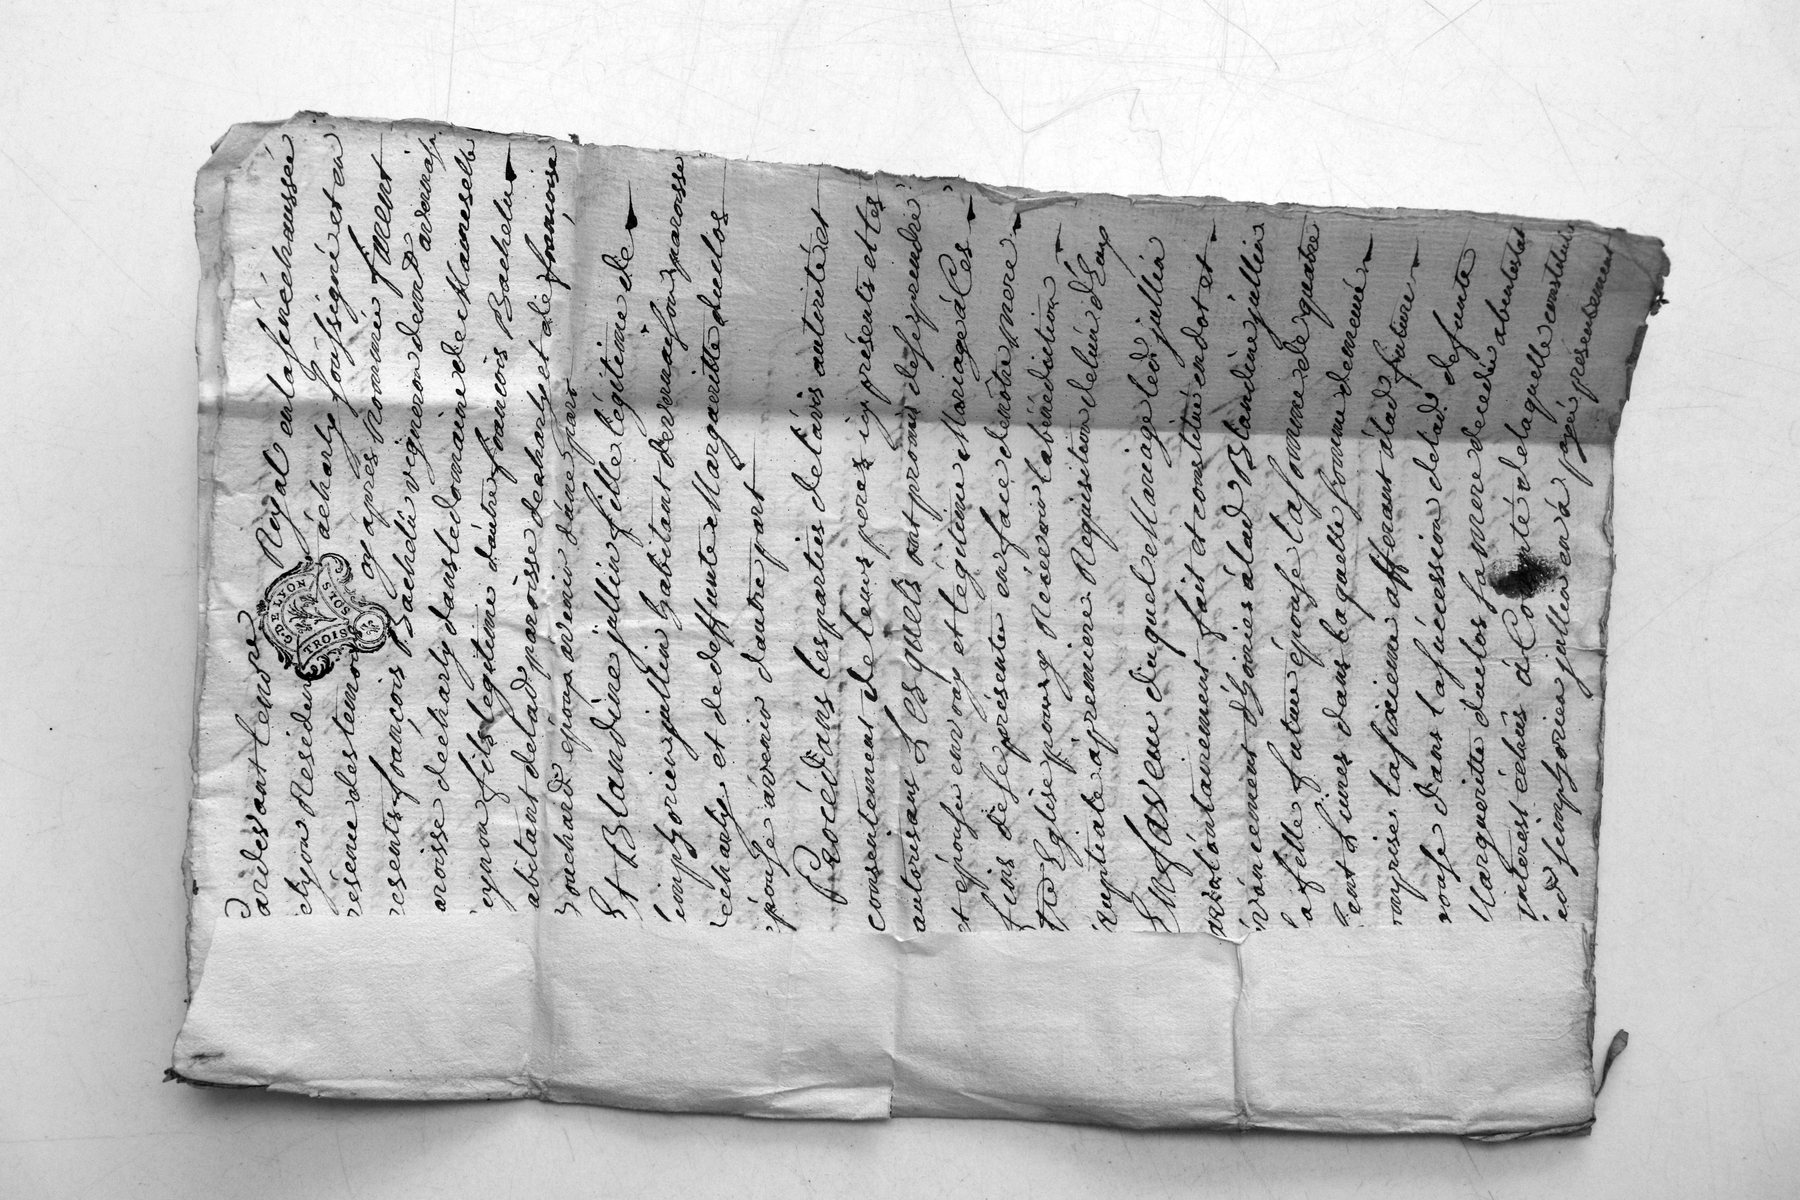 Pardevant le no.re Royal en la sénéchaussée
Lyon Résidant à charly soussigné et en
résence des temoins cy apres nommés furent
résents françois Bachelu vigneron demt a vernaison
aroisse de charly dans le domaine de Mamselle
eymon fils légitime dautre françois Bachelu
abitant de lad parroisse de charly et de françoise
Bouchard époux avenir dune part
Et Blandine jullin fille légitime de
simphorien jullin habitant de vernaison parroisse
de charly et de deffunte Marguerite duclos
épouse avenir dautre part
Procédans les parties de l'avis autorité et
consentement de leurs peres icy présents et les
autorisans Lesquels ont promis de se prendre
et épouser en vray et légitime Mariage à Ces
fins de se présenter en face de notre mere
tte Eglise pour y Recevoir la bénédiction
nuptiale a premiere Requisition de lun d'Eux
En faveur duquel Mariage led jullin
a volontairement fait et constitué en dot et
avancement d'hoiries à lad Blandine jullin
sa fille future épouse la somme de quatre
Cent Livres dans laquelle somme demeure
comprise la sixieme afferant à lad future
Epouse dans la succession de lad defunte
Marguerite duclos sa mere decedée abintestat
interest échus à Compte de laquelle constitution
led simphorien jullin en à payé présentement
G. DE LYON
TROIS SOLS